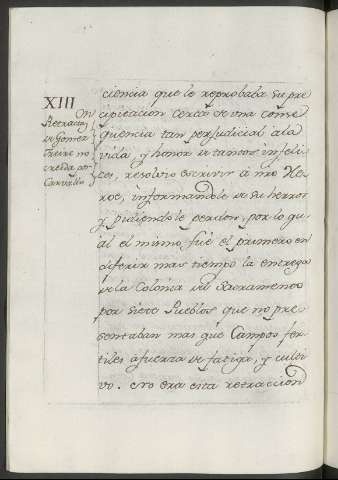 XIII
Retractaz.n
de Gomez
Freire no
creida por
Carvallo
ciencia que le reprobaba su pre
cipitacion cerca de una conse
quencia tan perjudicial a la
vida, y honor de tantos infeli
ces, resolvio escrivir à nro He
roe, informandole de su herror
y pidiendole perdon, por lo qu
al el mismo, fue el primero en
diferir mas tiempo la entrega
de la Colonia del Sacramento
por siete Pueblos que no pre
sentaban mas que Campos fer
tiles a fuerza de fatiga, y culti
vo. No era esta retraccion